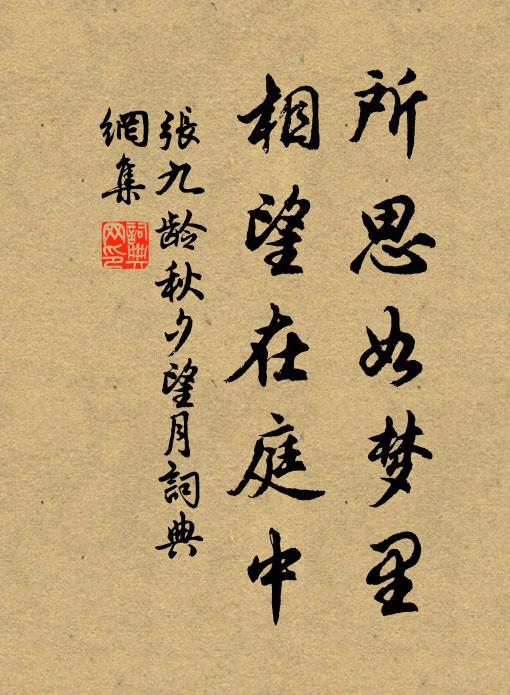 所思如梦里
相望在庭中
張九龄秋夕望月詞典
網集
詞典
网印